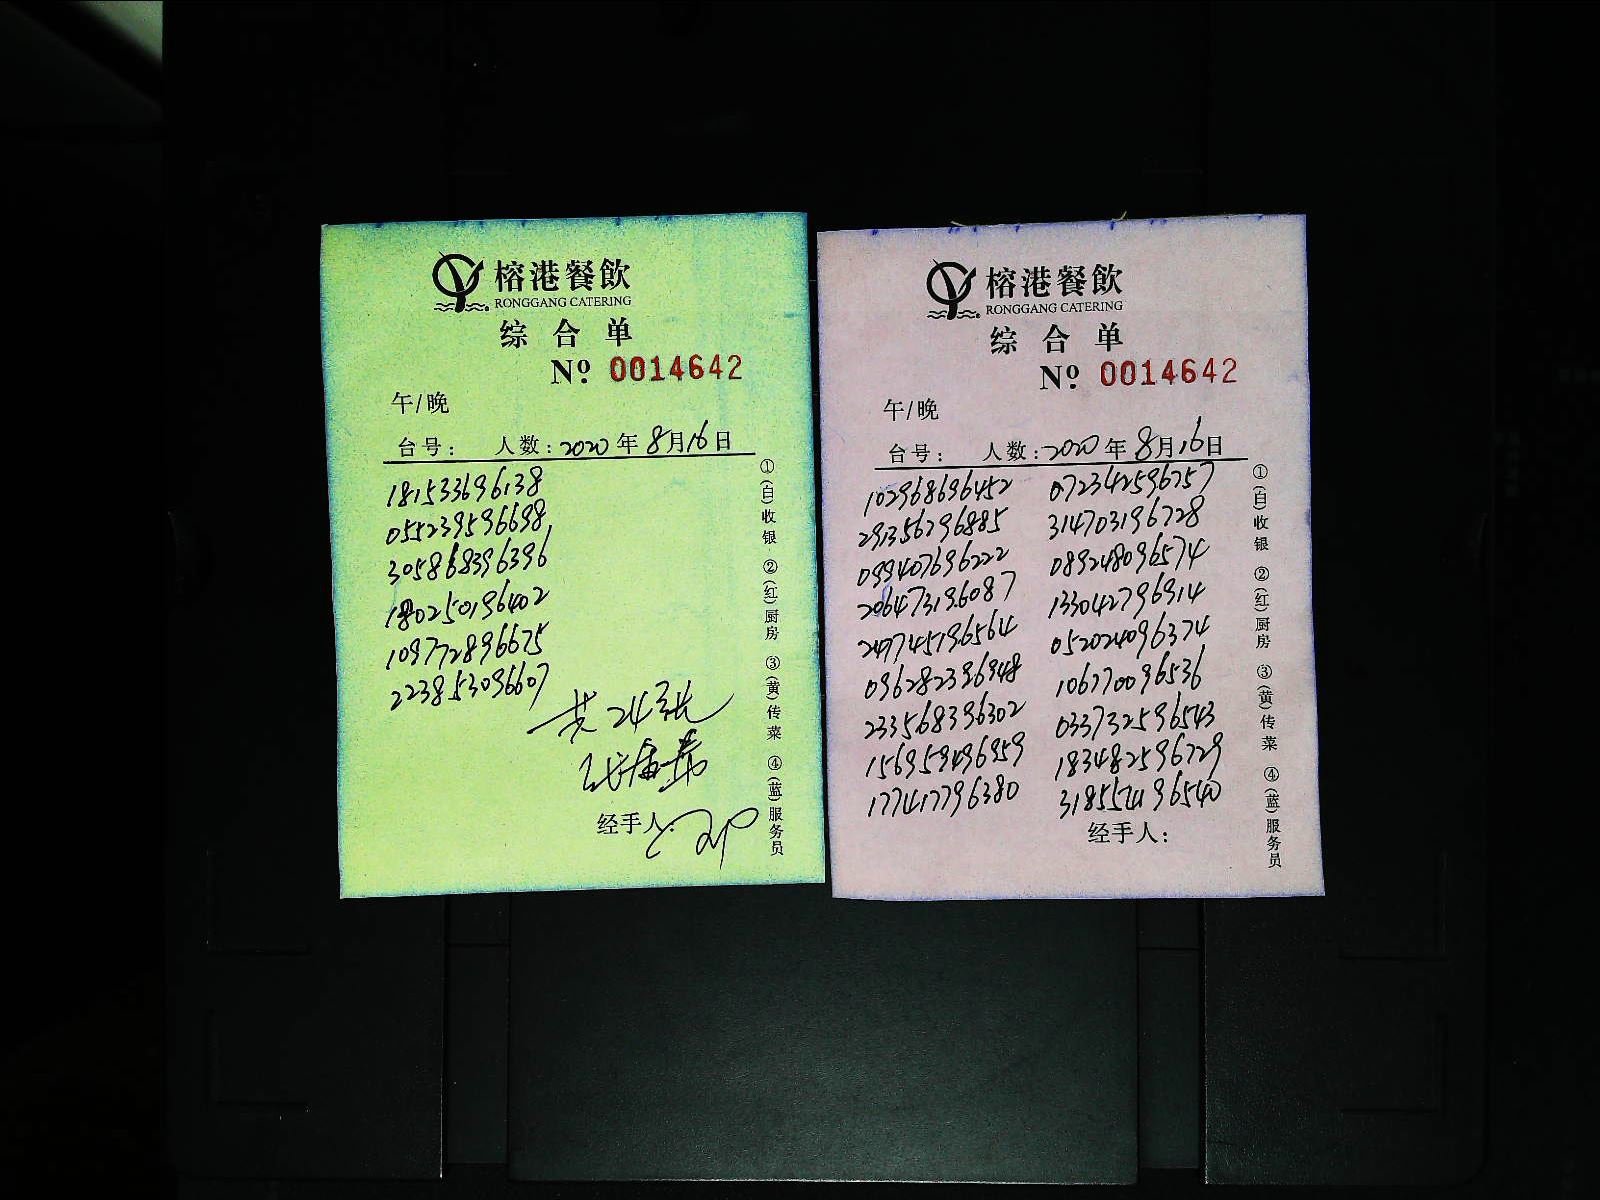 榕港餐飲
RONGGANG CATERING
综合单
Nº 0014642
午/晚
台号: 人数: 2020年8月16日
181533696138
055239596698
305868396396
180250196402
109772896675
223853096607
共24张
经手人:
①(白)收银 ②(红)厨房 ③(黄)传菜 ④(蓝)服务员
榕港餐飲
RONGGANG CATERING
综合单
Nº 0014642
午/晚
台号: 人数: 2020年8月16日
102968696452 072342596757
291356796885 314703196728
099407696222 089248096574
206473196087 133042796914
249745796564 052024096374
096282396948 106770096536
233568396302 033732596543
156959496959 183482596729
177417796380 318557196540
经手人:
①(白)收银 ②(红)厨房 ③(黄)传菜 ④(蓝)服务员